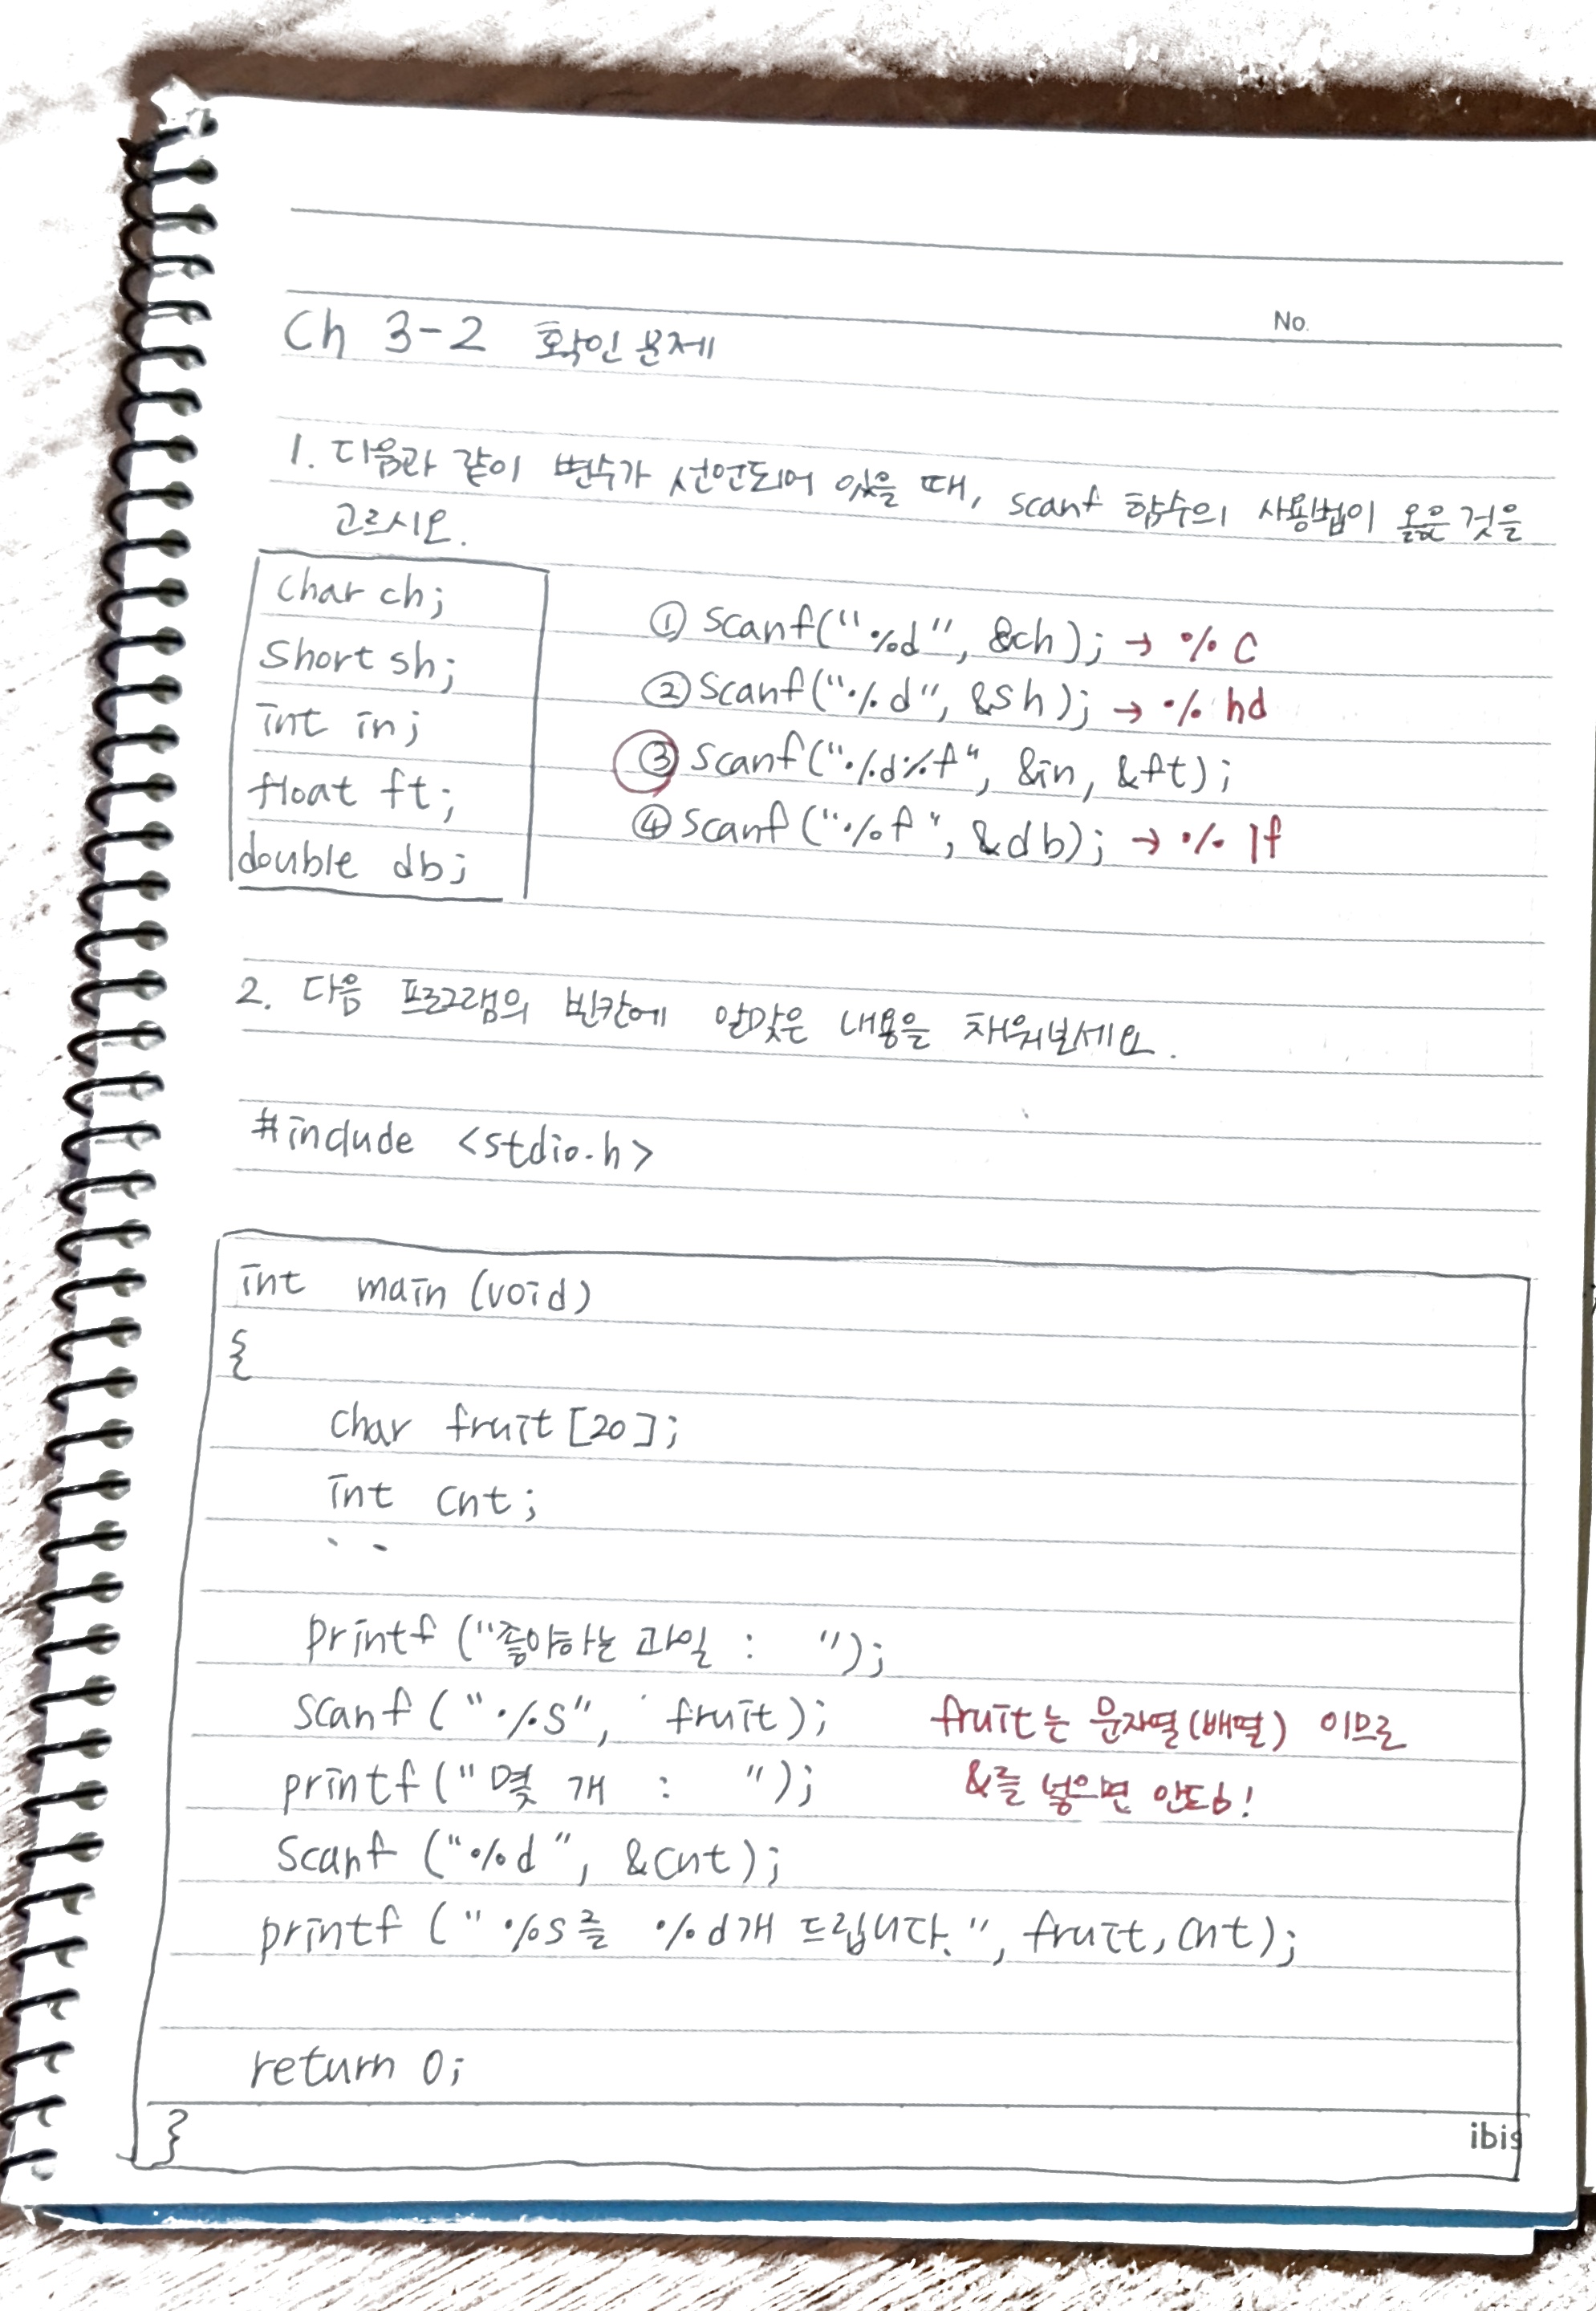 No.
Ch 3-2 확인문제
1. 다음과 같이 변수가 선언되어 있을 때, scanf 함수의 사용법이 옳은 것을
고르시오.
char ch;
short sh;
int in;
float ft;
double db;
① scanf("%d", &ch); → %c
② scanf("%d", &sh); → %hd
③ scanf("%d%f", &in, &ft);
④ scanf("%f", &db); → %lf
2. 다음 프로그램의 빈칸에 알맞은 내용을 채워보세요.
#include <stdio.h>
int main (void)
{
char fruit [20];
int cnt;
printf ("좋아하는 과일 : ");
scanf ("%s", fruit); fruit는 문자열(배열) 이므로
printf("몇 개 : "); &를 넣으면 안됨!
scanf ("%d", &cnt);
printf ("%s를 %d개 드립니다.", fruit, cnt);
return 0;
}
ibis